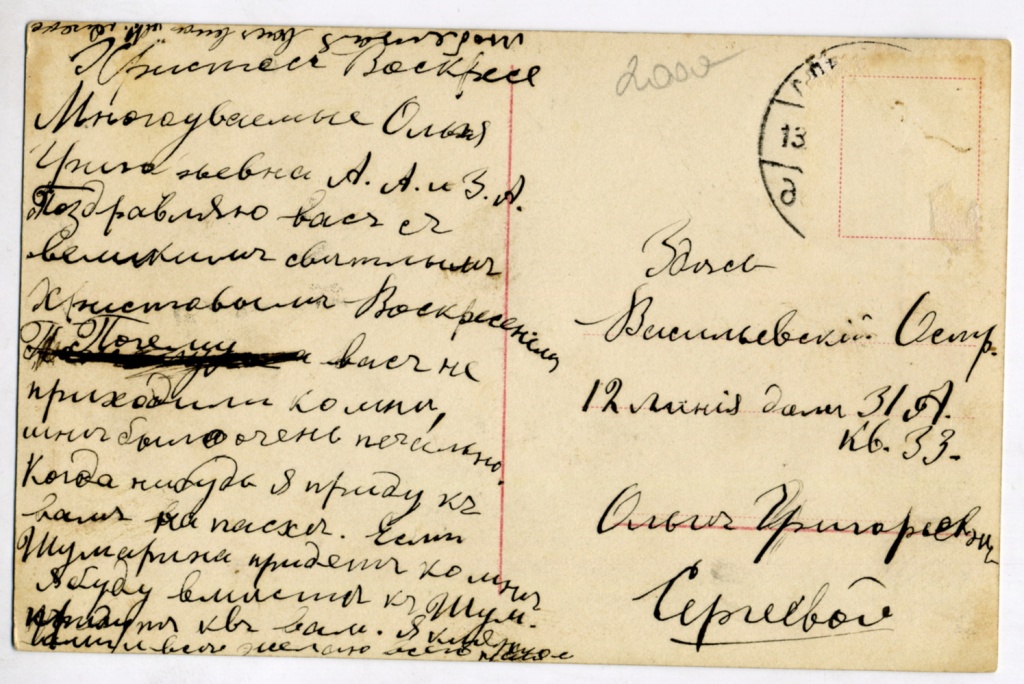 Христосъ Воскресе
Многоуваемые Ольга
Григорьевна А. А. и З. А.
Поздравляю васъ съ
великимъ святлымъ
Христовымъ Воскресеніем
Почему васъ не
приходили ко мнѣ,
мнѣ было очень печально.
Когда нибудь я приду къ
вамъ на пасхѣ. Если
Шумарина придетъ ко мнѣ
я буду вместѣ къ Шум.
къ вам. Я
желаю всего
2000
13
Здѣсь
Васильевскій Остр.
12 линія домъ 31 А.
кв. 33.
Ольгѣ Григорьевнѣ
Сергеевой